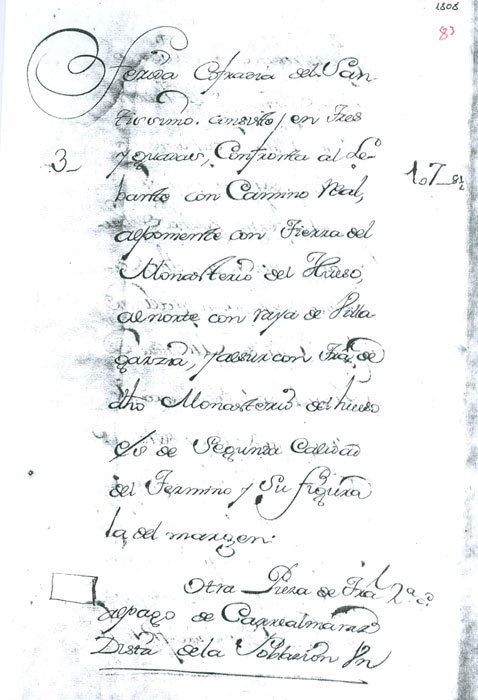 1808
83
ferida Cofradia del San-
tissimo. consiste en tres
3_ yguavas, Confronta al Le-
1,,7_8½
bante con Camino Real,
alponiente con Tierra del
Monasterio del Hueso,
al norte con raya de Villa
garzia, yalsur con Tra de
dho Monasterio del hueso
es de Segunda Calidad
del Termino y Su figura
la del margen.
Otra Pieza de Tra 2ª cd
alpago de Carrealmaraz
Dista dela Poblacion Un